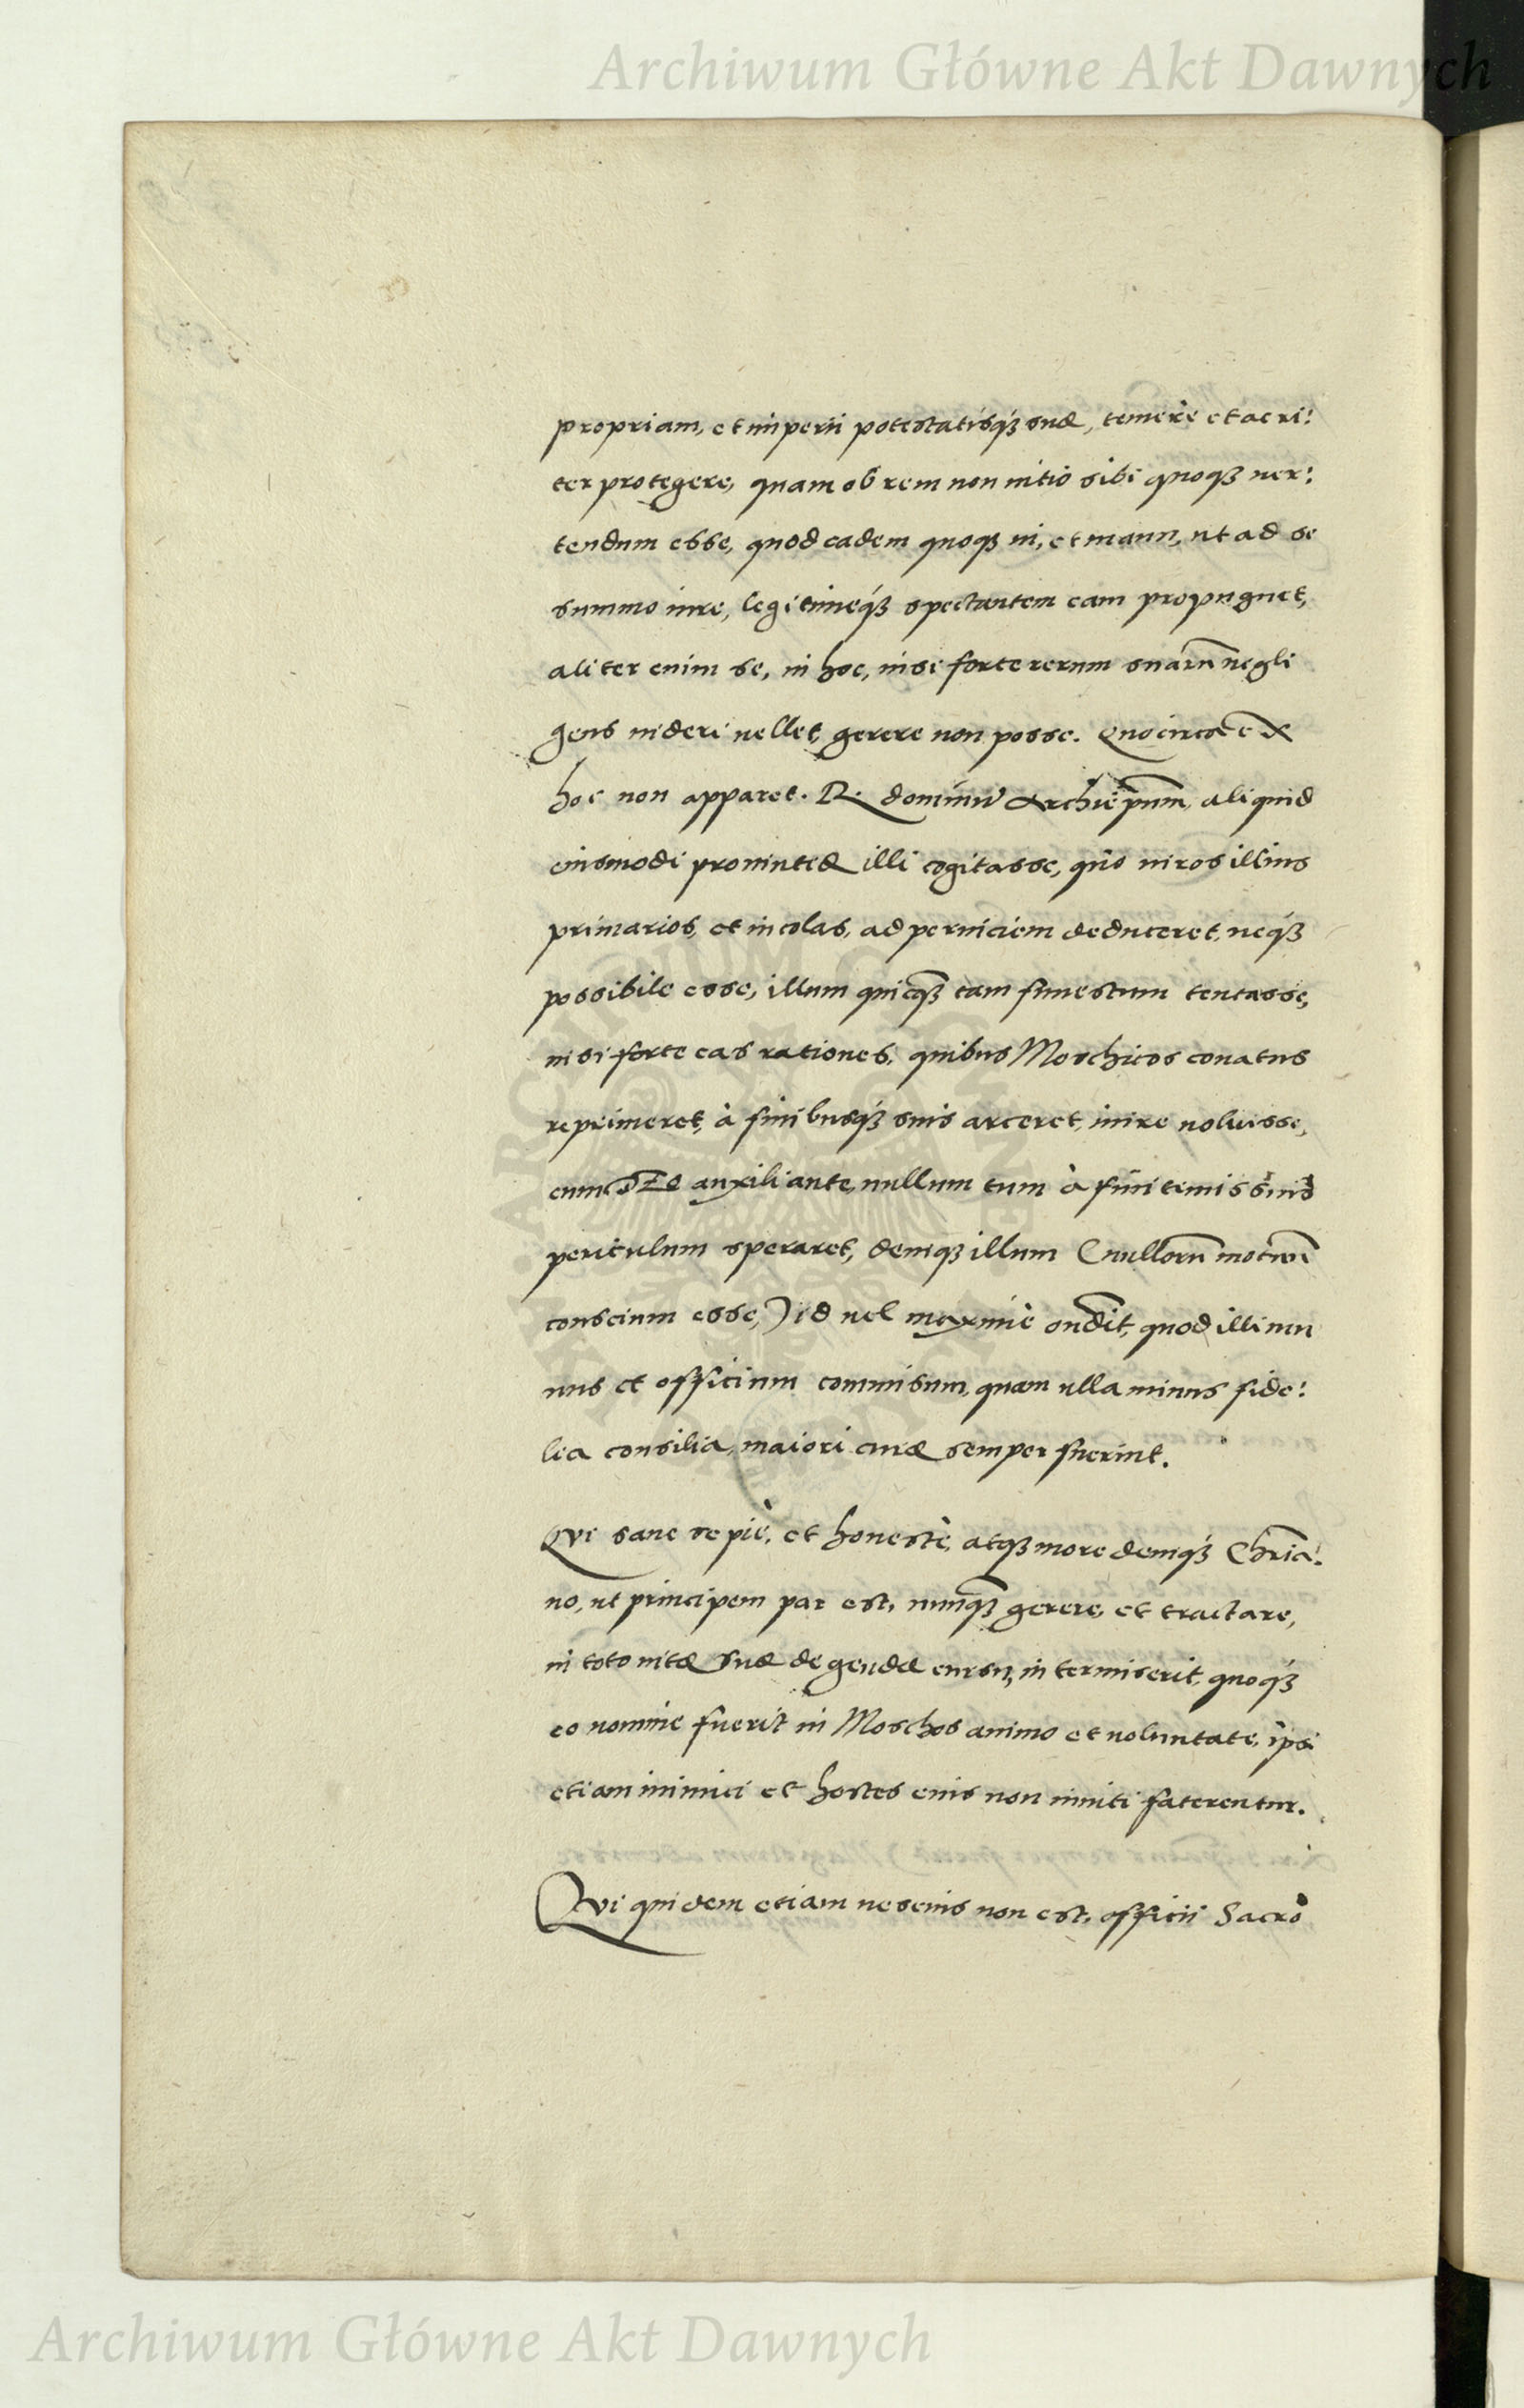 Archiwum Główne Akt Dawnych
propriam, et imperii potestatisq́ꝫ suæ, temerè et acri:
ter protegere, quam ob rem non uitio sibi quoqꝫ uer:
tendum esse, quod eadem quoqꝫ ui, et manu, ut ad se
summo iure, legitimeq́ꝫ spectantem eam propugnet,
aliter enim se, in hoc, nisi forte rerum suarũ negli
gens uideri uellet, gerere non posse. Quocirca ex
hoc non apparet. R. dominũ Archiep̃um, aliquid
eiusmodi prouintiæ illi cogitasse, quo uiros illius
primarios, et incolas, ad perniciem deduceret, neq́ꝫ
possibile esse, illum quicq̃ꝫ tam funestum tentasse,
nisi forte eas rationes, quibus Moschicos conatus
reprimeret, à finibusq́ꝫ suis arceret, inire uoluisse,
cum DEO auxiliante, nullum tum à finitimis suis
periculum speraret, deniqꝫ illum (nullorũ motuũ
conscium esse,) id uel maximè oñdit, quod illi mu
nus et officium commisum, quam ulla minus fide:
lia consilia, maiori curæ semper fuerint.
Qui sane se piè, et honestè, atqꝫ more deniq́ꝫ Chr̃ia:
no, ut principem par est, nunq̃ꝫ gerere, et tractare,
in toto uitæ suæ degendæ cursu, intermiserit, quoq́ꝫ
eo nomine fuerit in Moschos animo et uoluntate, ipsi
etiam inimici et hostes eius non inuiti faterentur.
Qui quidem etiam nescius non est, officii Sacro
ARCHIWUM GŁÓWNE AKT DAWNYCH
Archiwum Główne Akt Dawnych